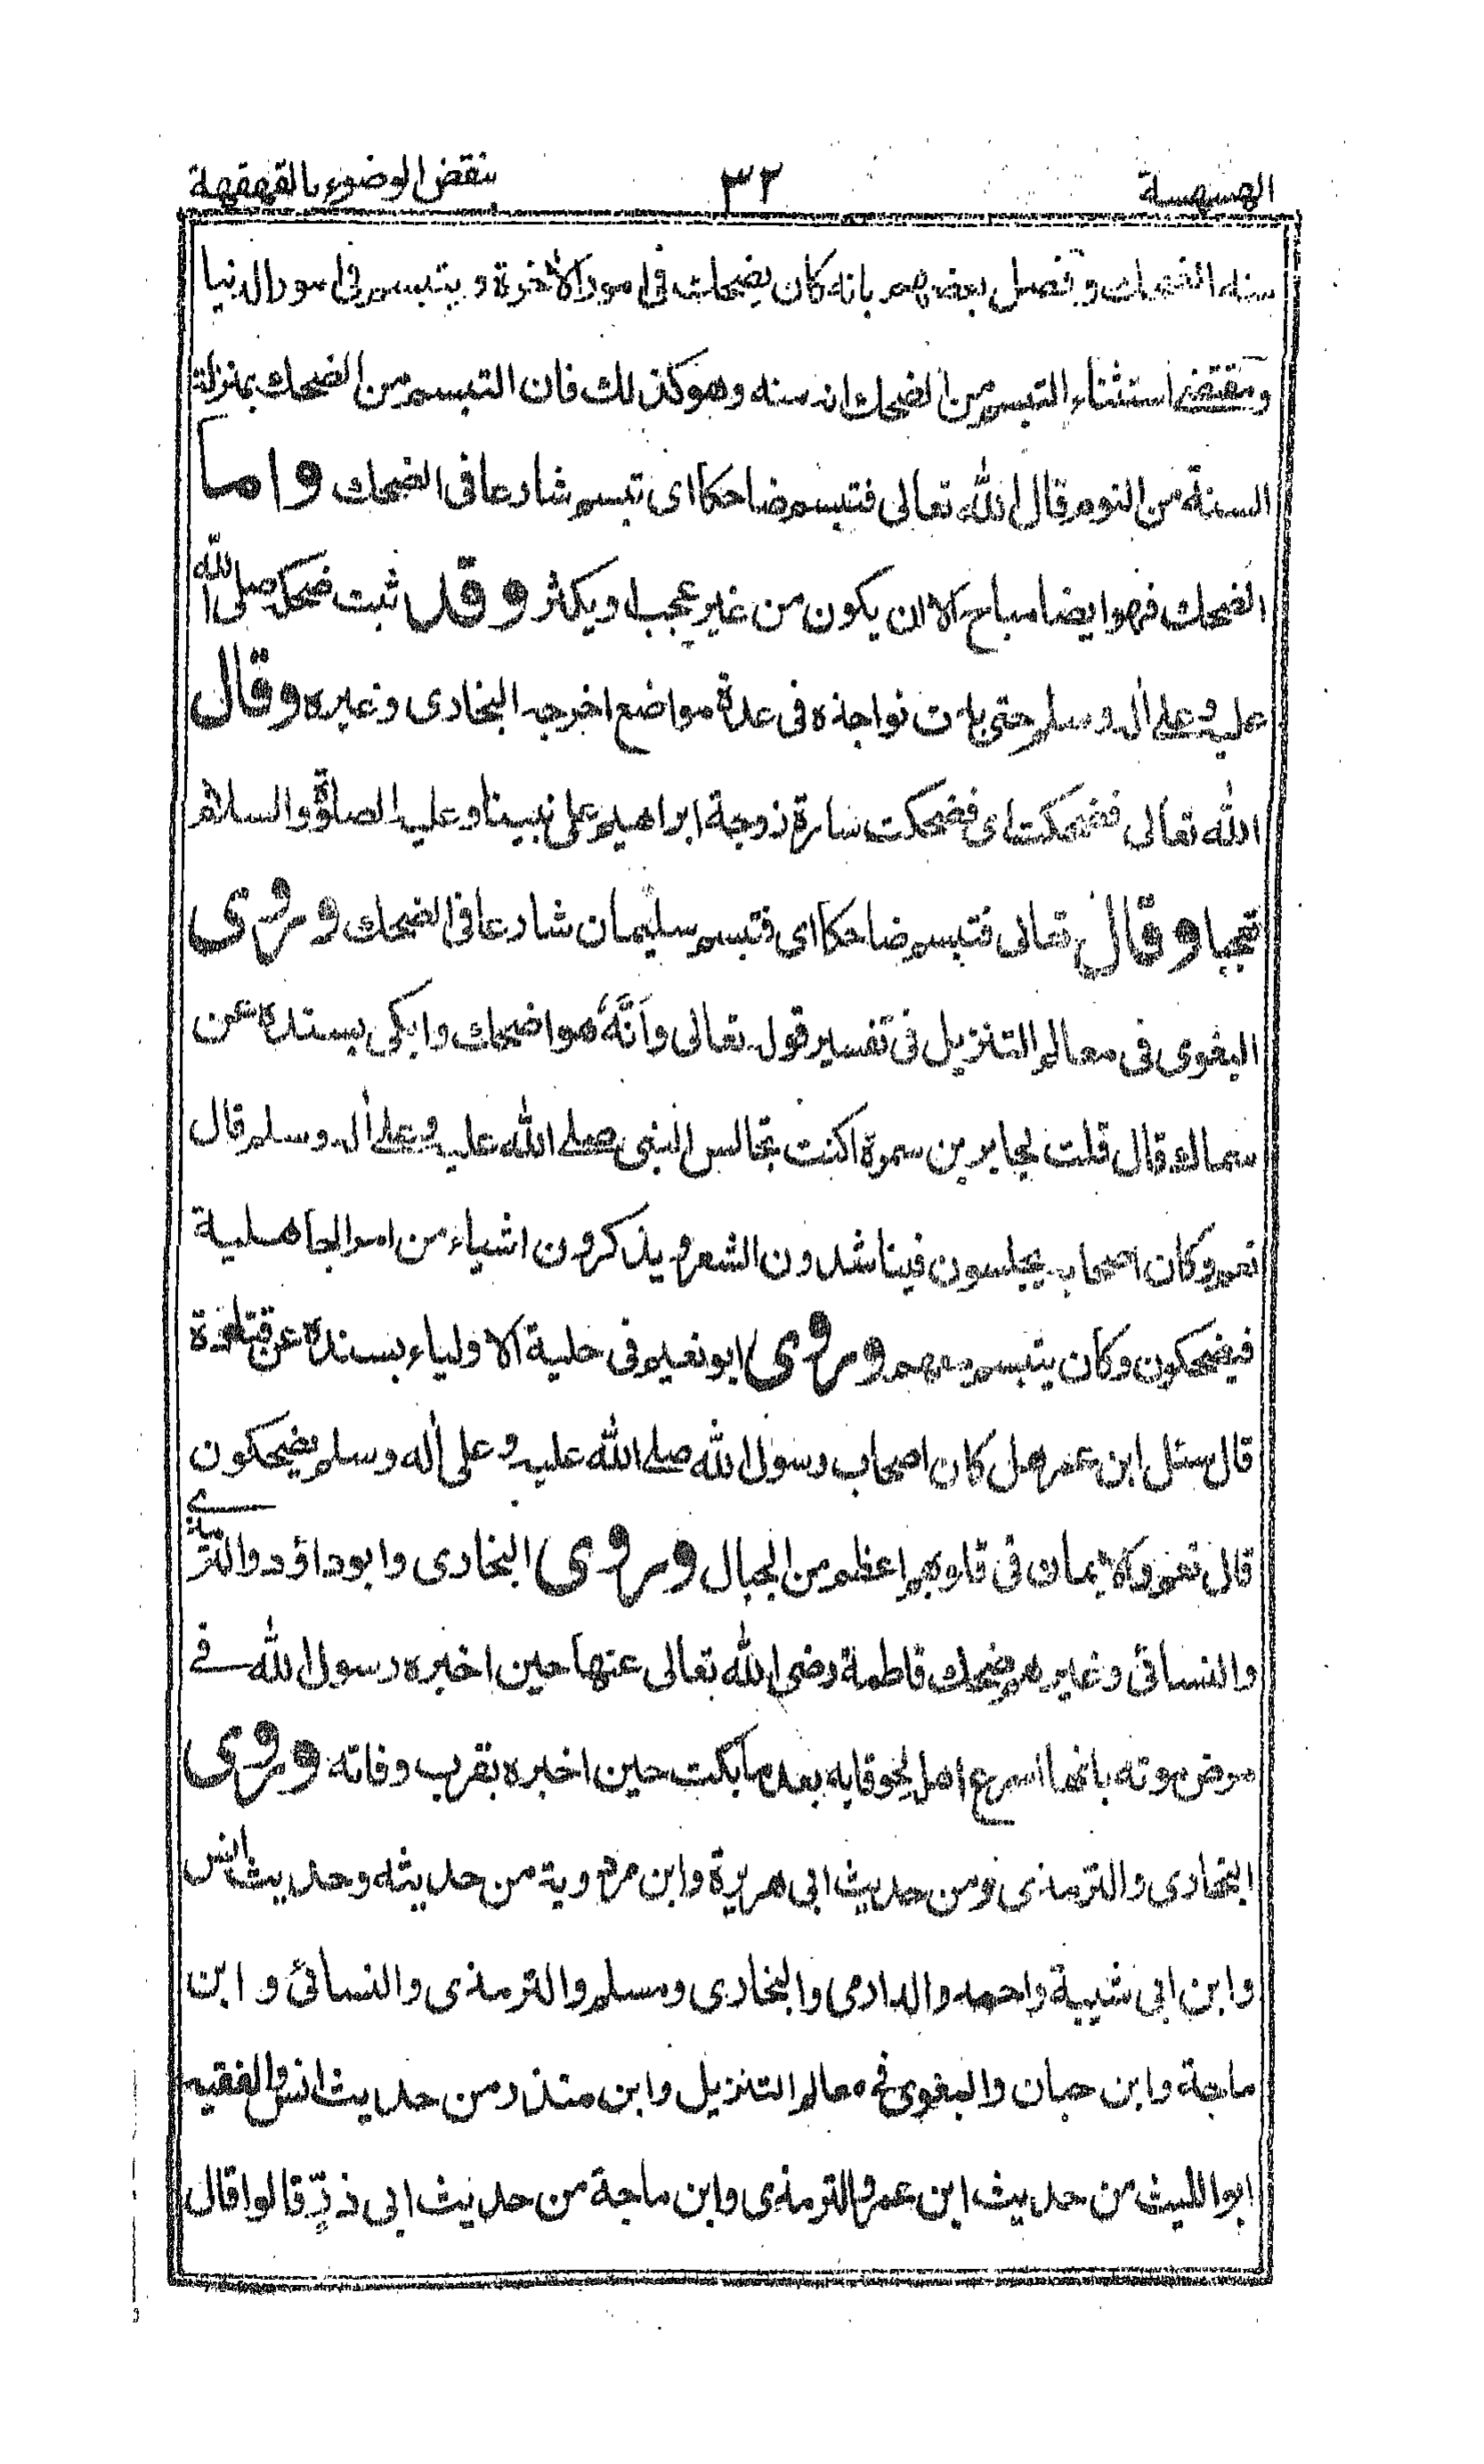 الهسهسة ٣٢ بنقض الوضوء بالقهقهة
منه الضحك وفصل بعضهم بانه كان يضحك في امور الاخرة ويتبسم في امور الدنيا
ومقتضے استثناء التبسم من الضحك انه منه وهو كذلك فان التبسم من الضحك بمنزلة
السنة من النوم قال الله تعالى فتبسم ضاحكا اى تبسم شارعا فى الضحك واما
الضحك فهو ايضا مباح الا ان يكون من غير عجب او يكثر وقد ثبت ضحكه صلى الله
عليه وعلے اٰله وسلم حتى بدت نواجذه فى عدة مواضع اخرجه البخارى وغيره وقال
الله تعالى فضحكت اى فضحكت سارة زوجة ابراهيم على نبينا وعليه الصلوة والسلام
تعجبا وقال تعالى فتبسم ضاحكا اى فتبسم سليمان شارعا فى الضحك وروى
البغوى فى معالم التنزيل فى تفسير قوله تعالى وَاَنَّهٗ هو اضحك وابكى بسنده عن
سماك قال قلت لجابر بن سمرة اكنت تجالس النبى صلے الله عليه وعلے اٰله وسلم قال
نعم وكان اصحابه يجلسون فيناشدون الشعر ويذكرون اشياء من امر الجاهلية
فيضحكون وكان يتبسم معهم وروى ابو نعيم فى حلية الاولياء بسنده عن قتادة
قال سئل ابن عمر هل كان اصحاب رسول الله صلے الله عليه وعلى اٰله وسلم يضحكون
قال نعم والايمان فى قلوبهم اعظم من الجبال وروى البخارى وابو داؤد والترمذے
والنسائى وغيرهم ضحك فاطمة رضى الله تعالى عنها حين اخبره رسول الله فے
مرض موته بانها اسرع اهل لحوقا به بعد ما بكت حين اخبره بقرب وفاته وروى
البخارى والترمذى ومن حديث ابى هريرة وابن مردوية من حديثه وحديث انس
وابن ابى شيبة واحمد والدارمى والبخارى ومسلم والترمذى والنسائى و ابن
ماجة وابن حبان والبغوى فے معالم التنزيل وابن منذر من حديث انس والفقيه
ابو الليث من حديث ابن عمر والترمذى وابن ماجة من حديث ابى ذرّ قالوا قال